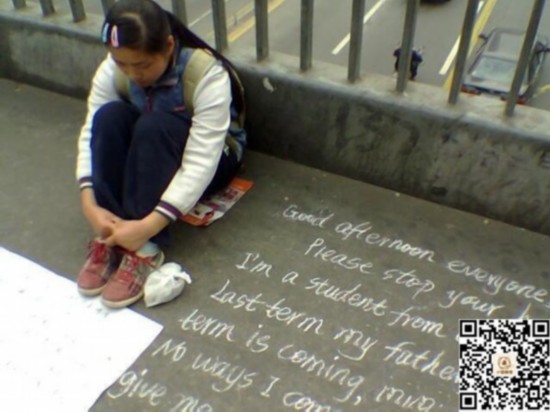 Good afternoon everyone
Please stop your
I'm a student from
Last term my father
term is coming,
No ways I com
give me